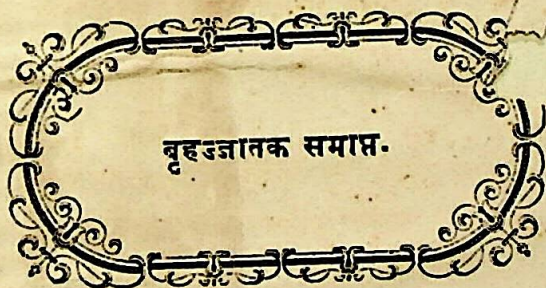 बृहज्जातक समाप्त.